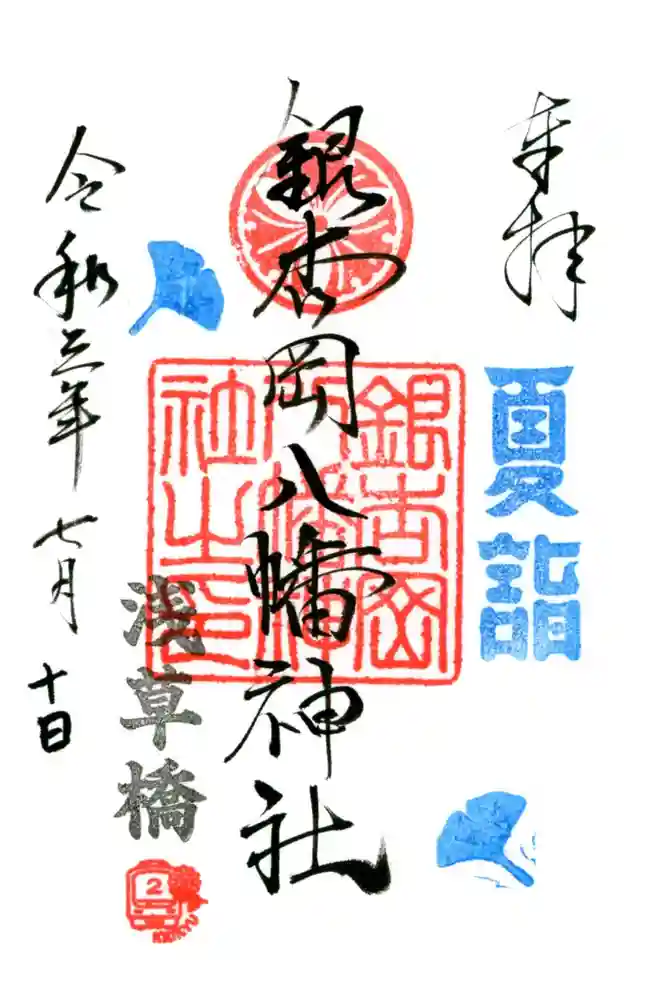 奉拝
夏詣
銀杏岡八幡神社
銀杏岡
八幡神
社之印
令和三年七月十日
浅草橋
2